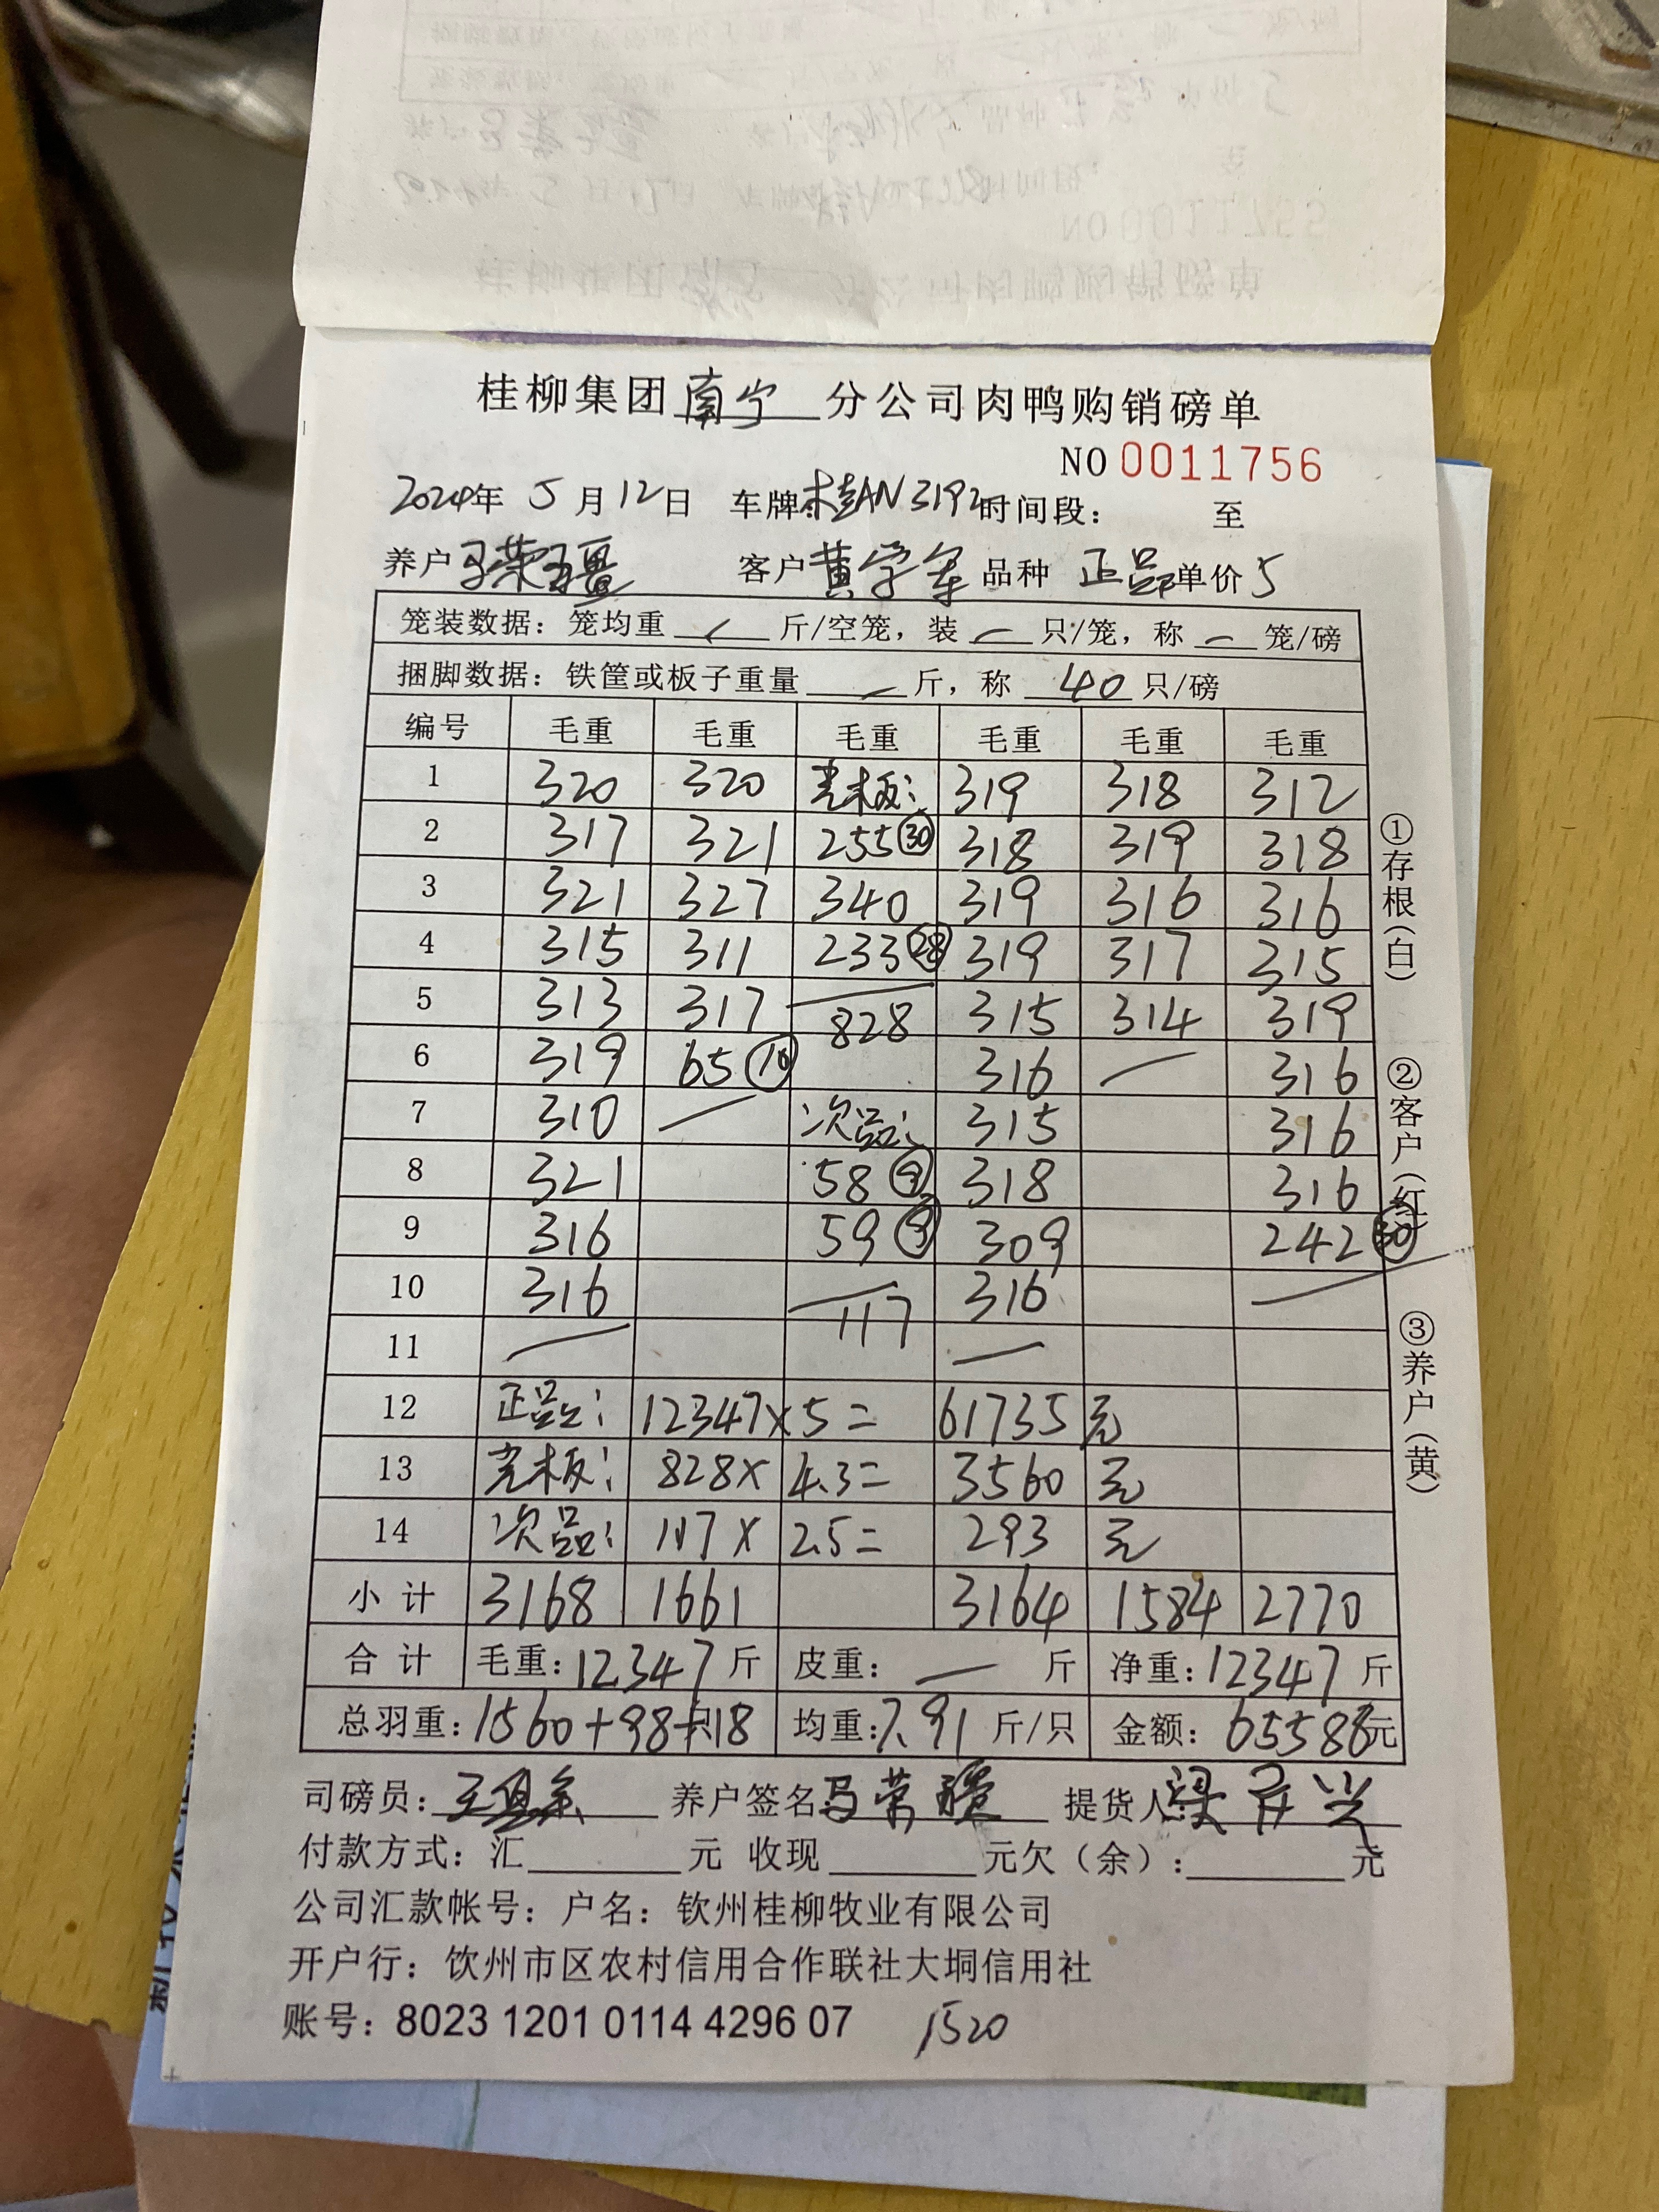 桂柳集团南宁分公司肉鸭购销磅单
NO 0011756
2024年 5月12日 车牌:桂AN3192 时间段: 至
养户 客户 黄学军 品种 正品 单价 5
笼装数据: 笼均重 — 斤/空笼, 装 — 只/笼, 称 — 笼/磅
捆脚数据: 铁筐或板子重量 — 斤, 称 40 只/磅
编号 毛重 毛重 毛重 毛重 毛重 毛重
1 320 320 光板: 319 318 312
2 317 321 255 ㉚ 318 319 318
3 321 327 340 319 316 316
4 315 311 233 ㉘ 319 317 315
5 313 317 828 315 314 319
6 319 65 316 — 316
7 310 — 次品: 315 316
8 321 58 ⑨ 318 316
9 316 59 ⑨ 309 242 ㉚
10 316 117 316 —
11 — —
12 正品: 12347× 5= 61735 元
13 光板: 828× 4.3= 3560 元
14 次品: 117× 2.5= 293 元
小计 3168 1661 3164 1584 2770
合计 毛重: 12347 斤 皮重: — 斤 净重: 12347 斤
总羽重: 1560+98+18 只 均重: 7.91 斤/只 金额: 65588元
司磅员: 养户签名: 提货人:
付款方式: 汇 元 收现 元欠(余): 元
公司汇款帐号: 户名: 钦州桂柳牧业有限公司
开户行: 饮州市区农村信用合作联社大垌信用社
账号: 8023 1201 0114 4296 07 1520
①存根(白)
②客户(红)
③养户(黄)